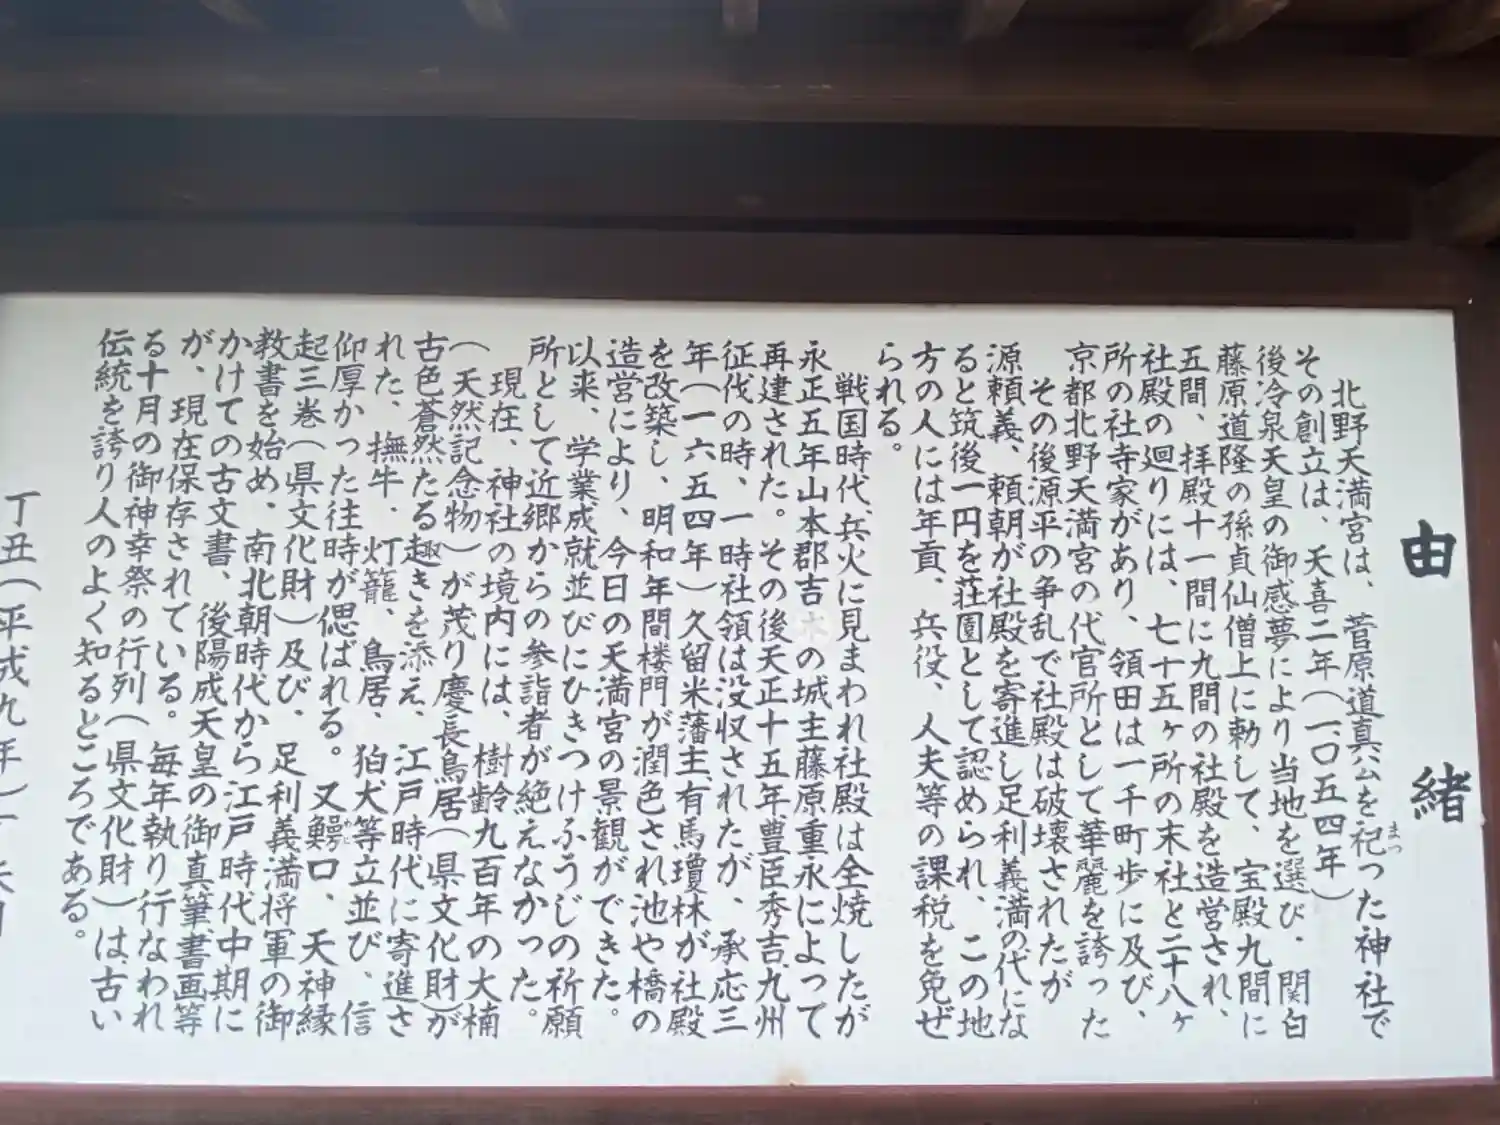 由緒
北野天満宮は、菅原道真公を祀った神社で
まつ
その創立は、天喜二年(一、〇五四年)
後冷泉天皇の御感夢により当地を選び、関白
藤原道隆の孫貞仙僧上に勅して、宝殿九間に
五間、拝殿十一間に九間の社殿を造営され、
社殿の廻りには、七十五ヶ所の末社と二十八ヶ
所の社寺家があり、領田は一千町歩に及び、
京都北野天満宮の代官所として華麗を誇った
その後源平の争乱で社殿は破壊されたが
源頼義、頼朝が社殿を寄進し足利義満の代にな
ると筑後一円を荘園として認められ、この地
方の人には年貢、兵役、人夫等の課税を免ぜ
られる。
戦国時代、兵火に見まわれ社殿は全焼したが
永正五年山本郡吉木の城主藤原重永によって
再建された。その後天正十五年豊臣秀吉、九州
征伐の時、一時社領は没収されたが、承応三
年(一六五四年)久留米藩主、有馬瓊林が社殿
を改築し、明和年間楼門が潤色され池や橋の
造営により、今日の天満宮の景観ができた。
以来、学業成就並びにひきつけふうじの祈願
所として近郷からの参詣者が絶えなかった。
現在、神社の境内には、樹齢九百年の大楠
(天然記念物)が茂り慶長鳥居(県文化財)が
古色蒼然たる趣きを添え、江戸時代に寄進さ
れた、撫牛、灯籠、鳥居、狛犬等立並び、信
仰厚かった往時が偲ばれる。又鰐口、天神縁
わに
起三巻(県文化財)及び、足利義満将軍の御
教書を始め、南北朝時代から江戸時代中期に
かけての古文書、後陽成天皇の御真筆書画等
が、現在保存されている。毎年執り行なわれ
る十月の御神幸祭の行列(県文化財)は、古い
伝統を誇り人のよく知るところである。
丁丑(平成九年)